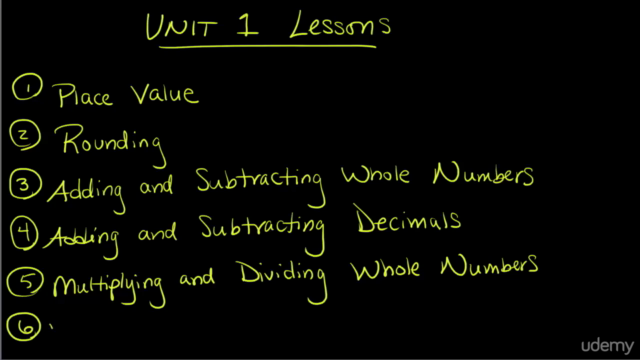 UNIT 1 Lessons
1 Place Value
2 Rounding
3 Adding and Subtracting Whole Numbers
4 Adding and Subtracting Decimals
5 Multiplying and Dividing Whole Numbers
6
udemy